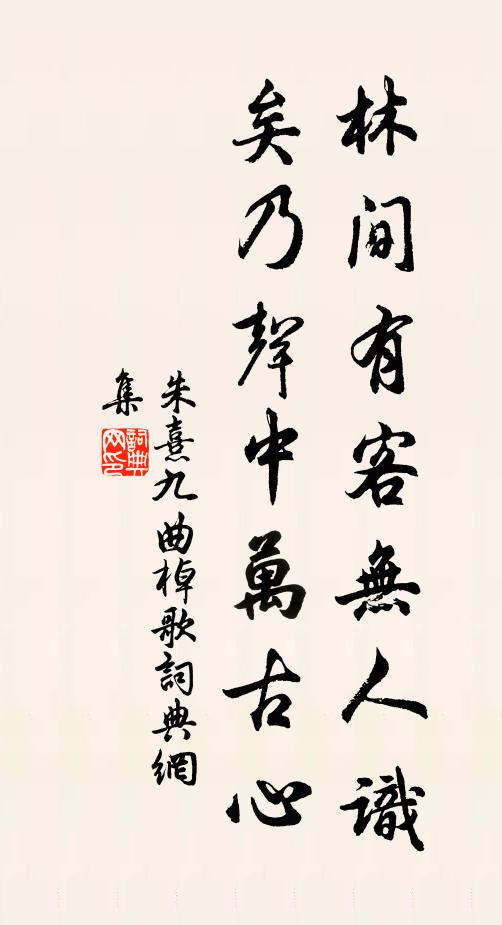 林間有客無人識
矣乃聲中萬古心
朱熹九曲棹歌詞典網
集
詞典
网印